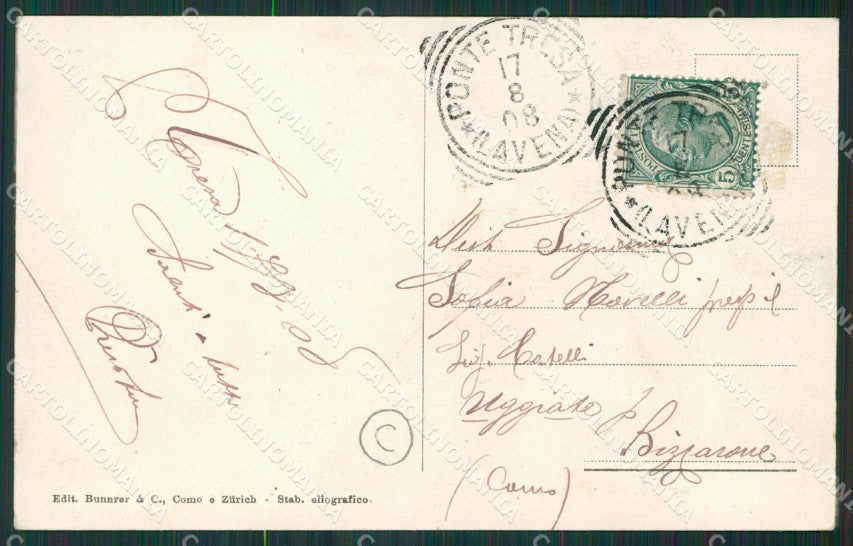 PONTE TRESA
17
8
08
*(LAVENA)*
5
(LAVENA
Tresa 17.8.08
Saluti a tutti
Dist. Signorina
Sofia Novelli presso il
Sig. Castelli
Uggiate p.
Bizzarone
(Como)
C
Edit. Bunnrer & C., Como e Zürich - Stab. eliografico.
CARTOLINOMANIA